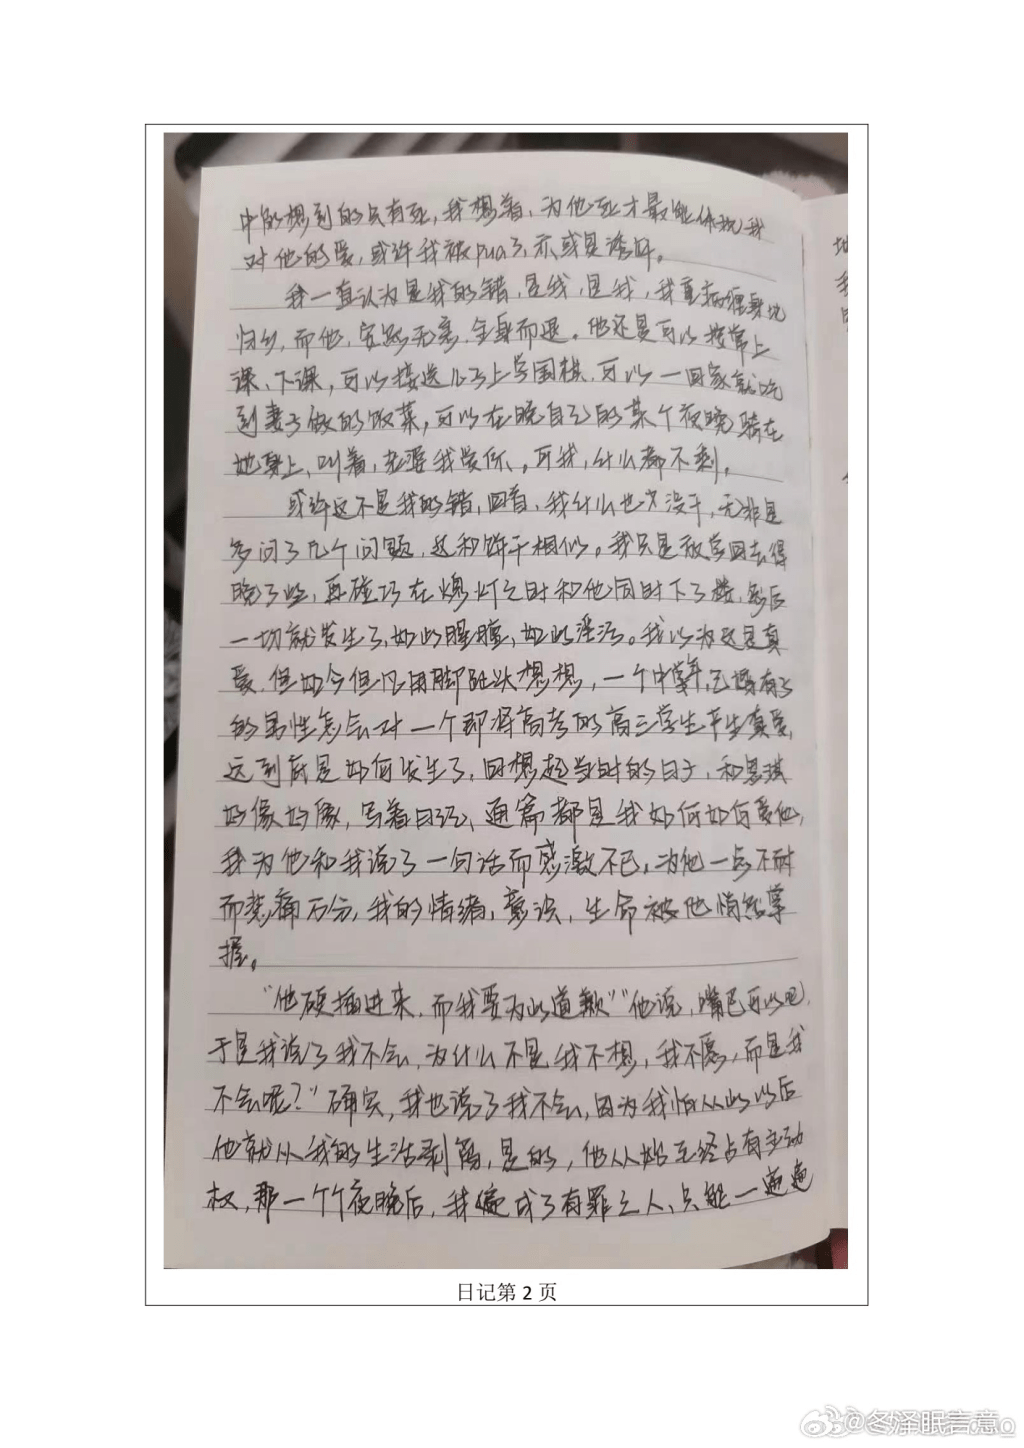 中的想到的只有死，我想着，为他死才最能体现我
对他的爱，或许我被pua了，亦或是诱奸。
我一直认为是我的错，是我，是我，我重病缠身
归乡，而他，安然无恙，全身而退。他还是可以按常上
课、下课，可以接送儿子上学围棋，可以一回家就吃
到妻子做的饭菜，可以在晚自己的某个夜晚骑在
她身上，叫着，老婆我爱你。可我，什么都不剩。
或许这不是我的错，回首，我什么也没干，无非是
多问了几个问题，这和饼干相似。我只是放学回去得
晚了些，再碰巧在熄灯之时和他同时下了楼，然后
一切就发生了，如此腥膻，如此淫污。我以为这是真
爱，但如今但凡用脚趾头想想，一个中年，已婚有子
的男性怎会对一个即将高考的高三学生产生真爱，
这到底是如何发生了，回想起当时的日子，和思琪
好像好像，写着日记，通篇都是我如何如何爱他，
我为他和我说了一句话而感激不已，为他一点不耐
而悲痛万分，我的情绪，意识，生命被他悄然掌
握。
“他硬插进来，而我要为此道歉”“他说，嘴巴可以吧，
于是我说了我不会，为什么不是我不想，我不愿，而是我
不会呢？”确实，我也说了我不会，因为我怕从此以后
他就从我的生活剥离，是的，他从始至终占有主动
权，那一个个夜晚后，我便成了有罪之人，只能一遍遍
日记第 2 页
@冬泽眠言意